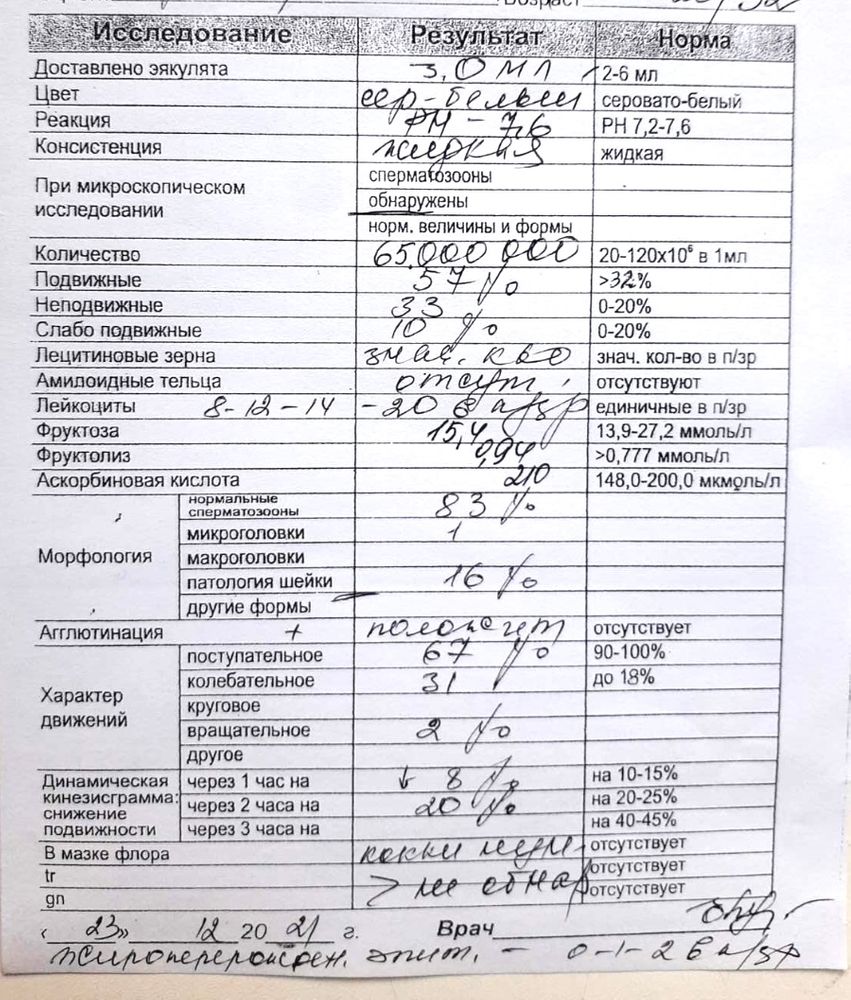 Возраст
Исследование Результат Норма
Доставлено эякулята 3,0 мл 2-6 мл
Цвет сер-белый серовато-белый
Реакция РН - 7,6 РН 7,2-7,6
Консистенция жидкая жидкая
При микроскопическом исследовании
сперматозооны
обнаружены
норм. величины и формы
Количество 65.000 000 20-120х10⁶ в 1мл
Подвижные 57 % >32%
Неподвижные 33 0-20%
Слабо подвижные 10 % 0-20%
Лецитиновые зерна знач. кво знач. кол-во в п/зр
Амилоидные тельца отсут. отсутствуют
Лейкоциты 8-12-14 -20 в п/зр единичные в п/зр
Фруктоза 15,4 13,9-27,2 ммоль/л
Фруктолиз 0,94 >0,777 ммоль/л
Аскорбиновая кислота 210 148,0-200,0 мкмоль/л
Морфология
нормальные сперматозооны 83 %
микроголовки 1
макроголовки
патология шейки 16 %
другие формы
Агглютинация + положит отсутствует
Характер движений
поступательное 67 % 90-100%
колебательное 31 до 18%
круговое
вращательное 2 %
другое
Динамическая кинезисграмма: снижение подвижности
через 1 час на ↓ 8 % на 10-15%
через 2 часа на 20 % на 20-25%
через 3 часа на на 40-45%
В мазке флора кокки отсутствует
tr отсутствует
gn > не обнар отсутствует
«23» 12 20 21 г. Врач
Жироперерожден. эпит. - 0-1-2 в п/зр